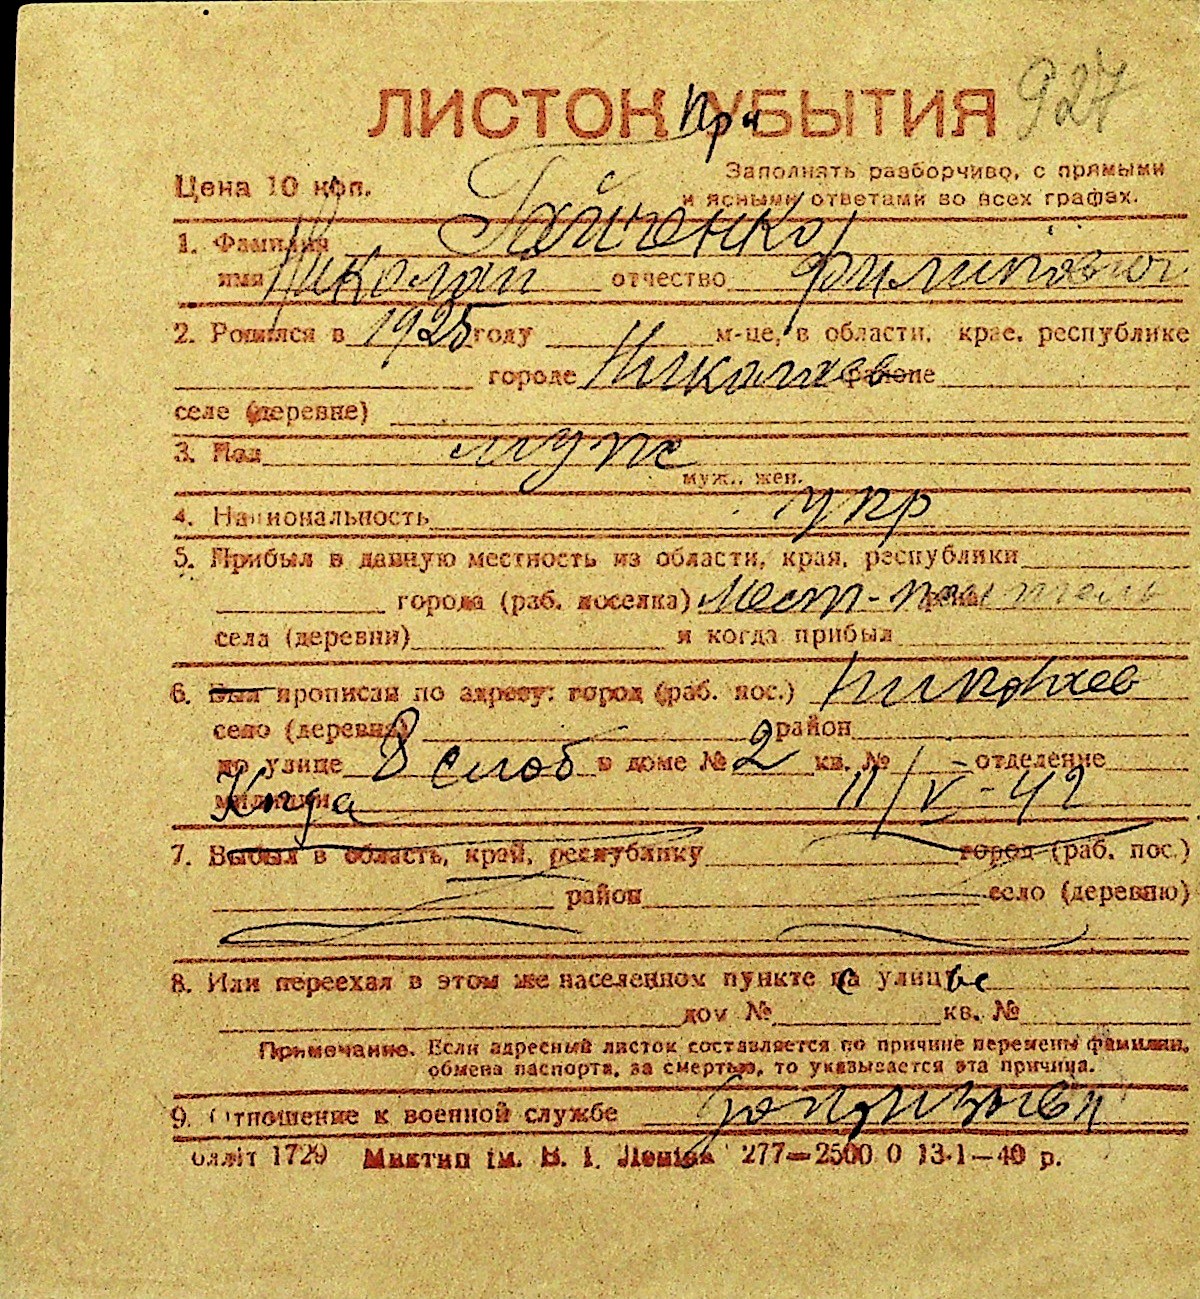 ЛИСТОК УБЫТИЯ При 927
Цена 10 коп.
Заполнять разборчиво, с прямыми
и ясными ответами во всех графах.
1. Фамилия Гайченко
имя Николай отчество Филипович
2. Родился в 1925 году м-це, в области, крае, республике
городе Николаев районе
селе (деревне)
3. Пол муж
муж., жен.
4. Национальность укр
5. Прибыл в данную местность из области, края, республики
города (раб. поселка) Мест-житель
села (деревни) и когда прибыл
6. Был прописан по адресу: город (раб. пос.) Николаев
село (деревня) район
по улице 8 слоб в доме № 2 кв. № отделение
милиции Когда 11/V-42
7. Выбыл в область, край, республику город (раб. пос.)
район село (деревню)
8. Или переехал в этом же населенном пункте с улицы с
дом № кв. №
Примечание. Если адресный листок составляется по причине перемены фамилии,
обмена паспорта, за смертью, то указывается эта причина.
9. Отношение к военной службе
олліт 1729 Миктип ім. В. І. Леніна 277—2500 0 13·1—40 р.